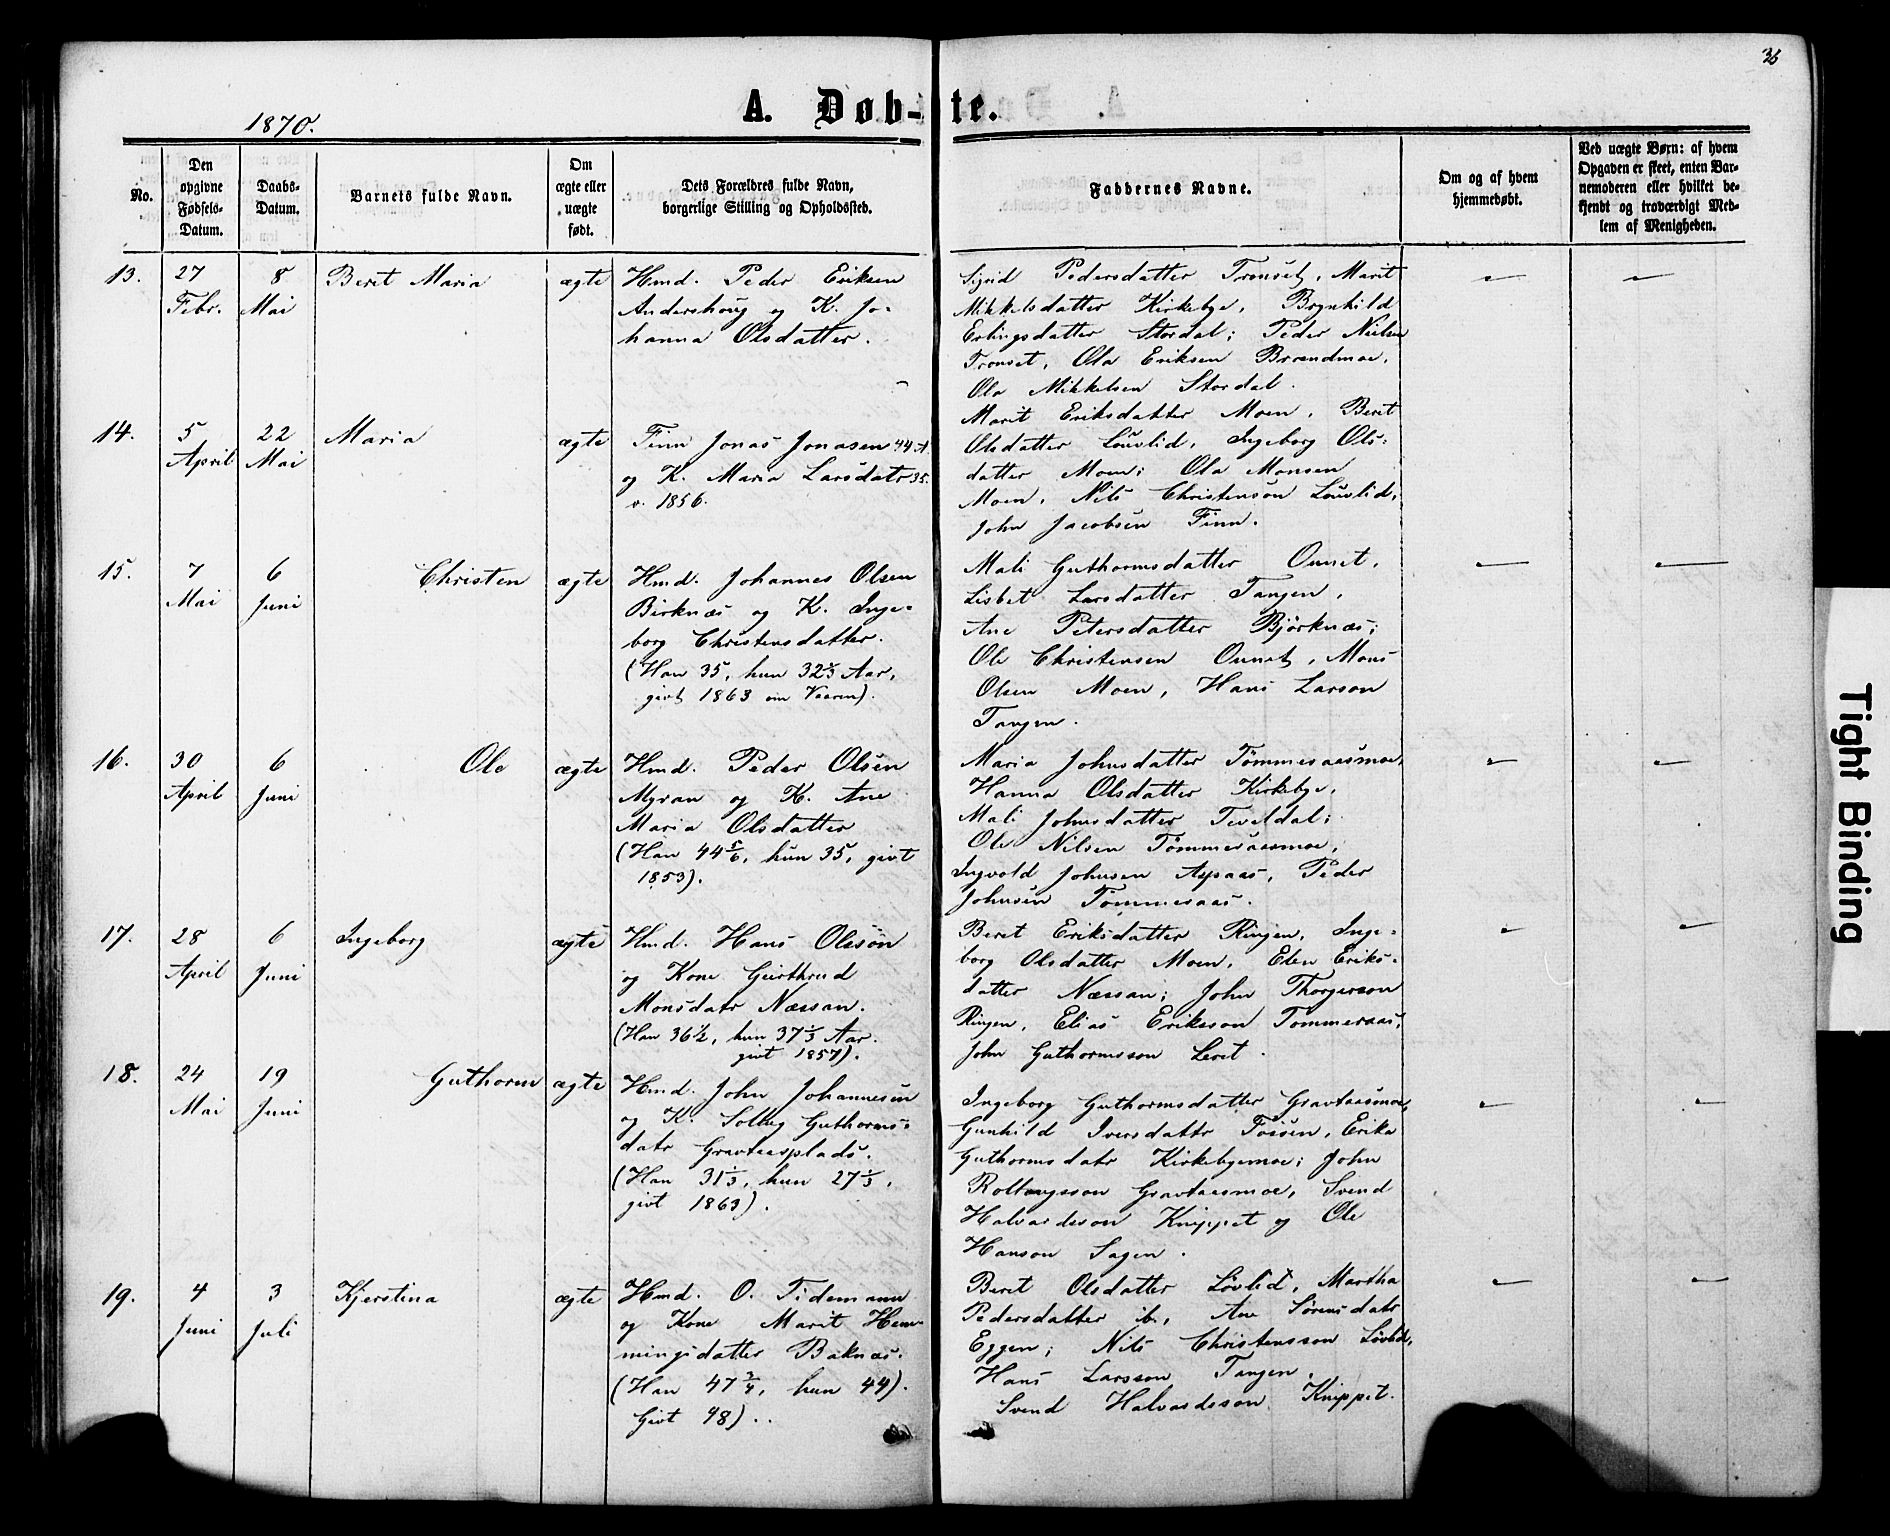 36
A. Døb-te.
1870.
No.
Den opgivne Fødsels-Datum.
Daabs-Datum.
Barnets fulde Navn.
Om ægte eller uægte født.
Dets Forældres fulde Navn, borgerlige Stilling og Opholdssted.
Faddernes Navne.
Om og af hvem hjemmedøbt.
Ved uægte Børn: af hvem Opgaven er skeet, enten Barnemoderen eller hvilket bekjendt og troværdigt Medlem af Menigheden.
13.
27 Febr.
8 Mai
Beret Maria
ægte
Hmd. Peder Eriksen
Andershoug og K. Jo-
hanna Olsdatter.
Sigrid Pedersdatter Tronset, Marit
Mikkelsdatter Kirkebye, Brynhild
Erlingsdatter Stordal; Peder Nielsen
Tronset, Ola Eriksen Brændmoe,
Ola Mikkelsen Stordal.
14.
5 April
22 Mai
Maria
ægte
Finn Jonas Jonasen 44 A.
og K. Maria Larsdatr 35.
v. 1856.
Marit Eriksdatter Moen, Beret
Olsdatter Louvlid, Ingeborg Ols-
datter Moen; Ola Monsen
Moen, Nils Christensøn Louvlid,
John Jacobsen Finn.
15.
7 Mai
6 Juni
Christen
ægte
Hmd. Johannes Olsen
Birknæs og K. Inge-
borg Christensdatter.
(Han 35, hun 32⅔ Aar,
givt 1863 om Vaaren).
Mali Guthormsdatter Ounet,
Lisbet Larsdatter Tangen,
Ane Petersdatter Bjørknæs;
Ole Christensen Ounet, Mons
Olsen Moen, Hans Larson
Tangen.
16.
30 April
6 Juni
Ole
ægte
Hmd. Peder Olsen
Myran og K. Ane
Maria Olsdatter
(Han 44 5/6, hun 35, givt
1853).
Maria Johnsdatter Tømmeraasmoe,
Hanna Olsdatter Kirkebye,
Mali Johnsdatter Teveldal;
Ole Nilsen Tømmeraasmoe,
Ingvold Johnsen Aspaas, Peder
Johnsen Tømmeraas.
17.
28 April
6 Juni
Ingeborg
ægte
Hmd. Hans Olssøn
og Kone Gjertrud
Monsdatr Næssan.
(Han 36½, hun 37⅓ Aar.
givt 1857).
Beret Eriksdatter Ringen, Inge-
borg Olsdatter Moen, Elen Eriks-
datter Næssan; John Thorgerson
Ringen, Elias Eriksson Tømmeraas,
John Guthormsson Leret.
18.
24 Mai
19 Juni
Guthorm
ægte
Hmd. John Johannesen
og K. Solveg Guthorms-
datr Gravtaasplads.
(Han 31⅓, hun 27⅓,
givt 1863).
Ingeborg Guthormsdatter Gravtaasmoe,
Gunhild Iversdattr Fossen, Erika
Guthormsdatr Kirkebyemoe; John
Gravtaasmoe, Svend
Halvardsson Knippet og Ole
Hanson Sagen.
19.
4 Juni
3 Juli
Kjerstina
ægte
Hmd. O. Tidemann
og Kone Marit Hem-
mingsdatter Baknæs.
(Han 47¾, hun 44).
Givt 48).
Beret Olsdatter Løvlid, Martha
Pedersdatter ib., Ane Sørensdatr
Eggen; Nils Christensson Løvlid,
Hans Larsson Tangen,
Svend Halvardsson Knippet.
Tight Binding